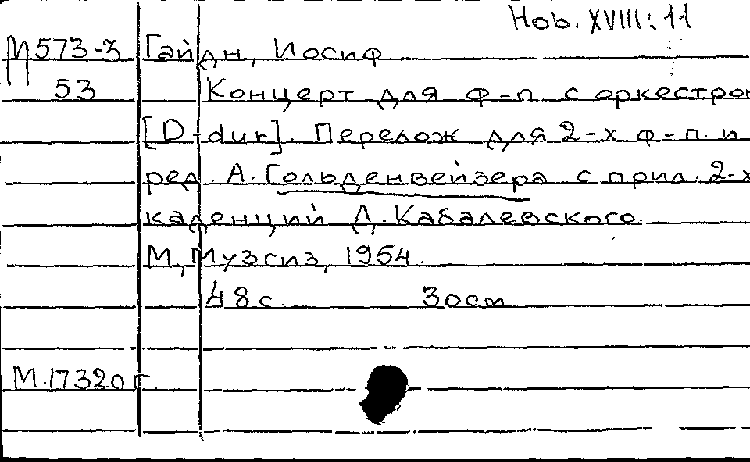 Hob. XVIII:11
М573-3 Гайдн, Иосиф
53 Концерт для ф-п с оркестром
[D-dur]. Перелож для 2-х ф-п. и
ред. А. Гольденвейзера с прил. 2-х
каденций Д. Кабалевского
М, Музгиз, 1954.
48 с. 30 см
М.17320 г.